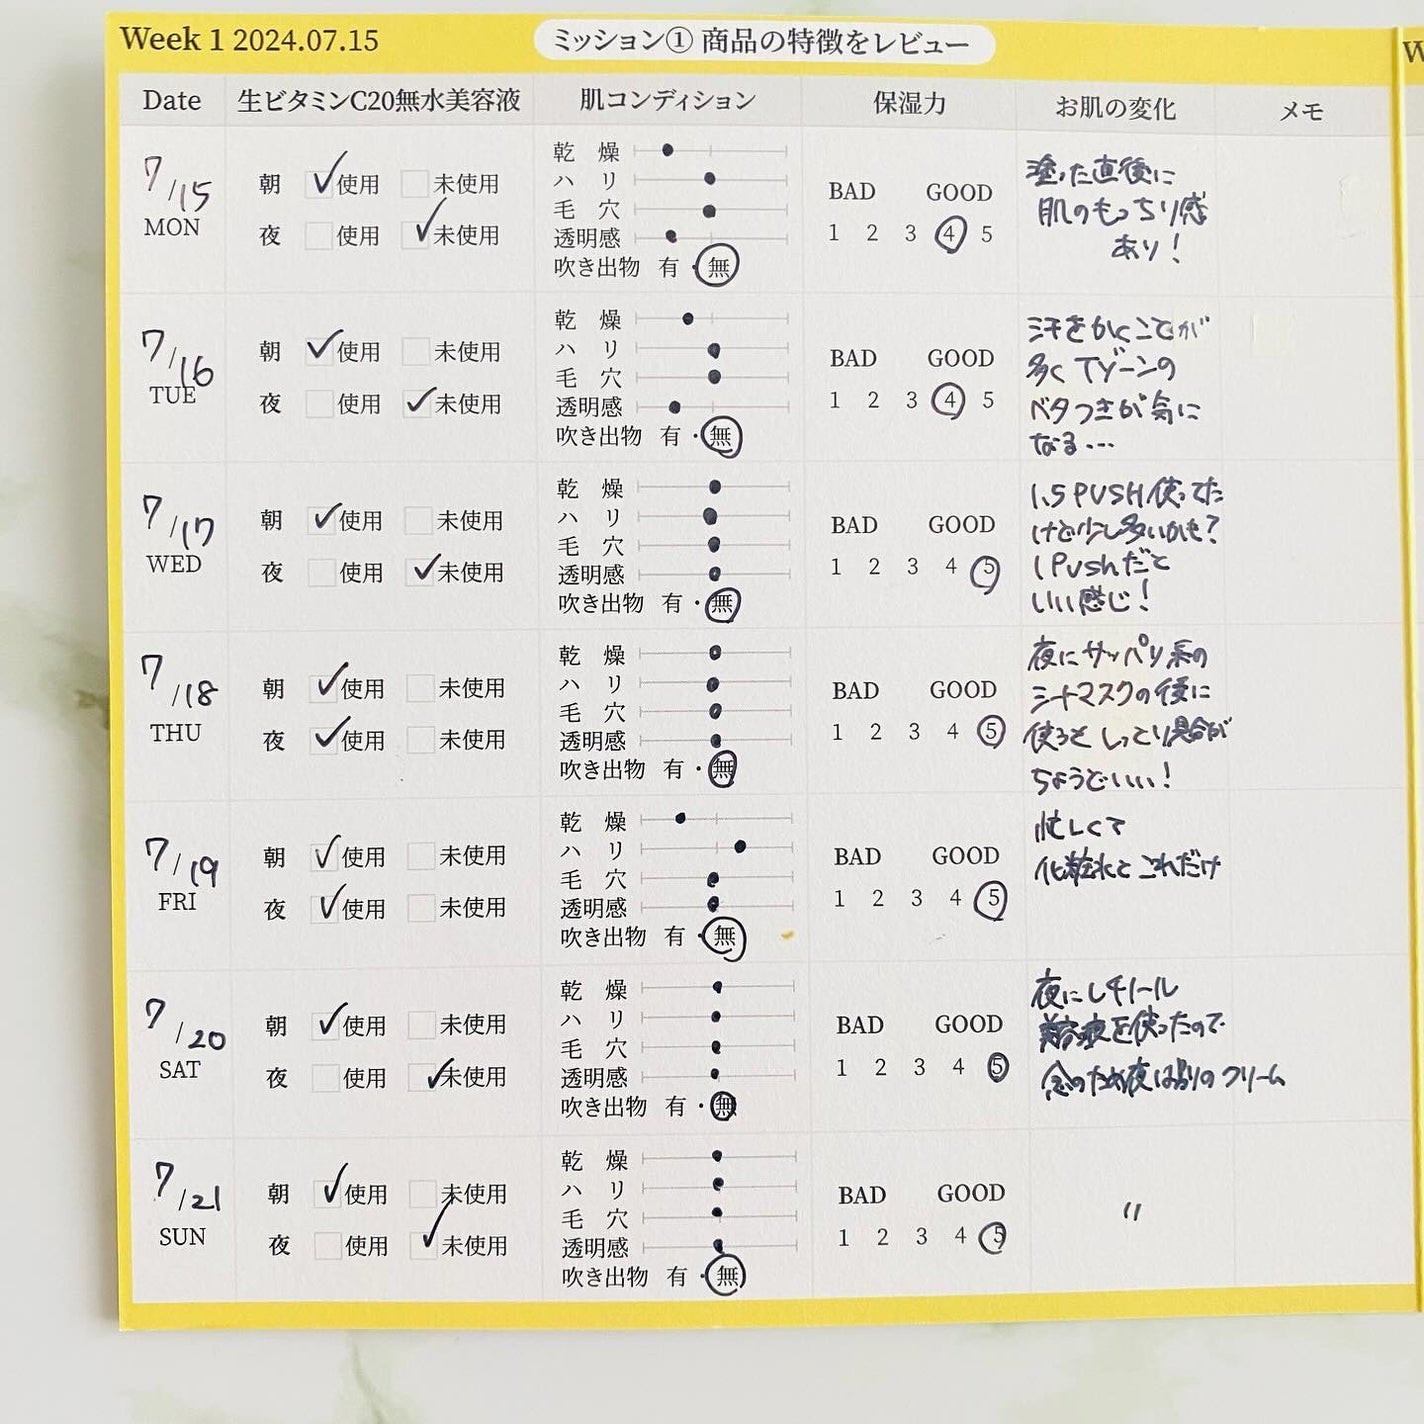 Week 1 2024.07.15
ミッション① 商品の特徴をレビュー
W
Date 生ビタミンC20無水美容液 肌コンディション 保湿力 お肌の変化 メモ
7/15
MON
朝 使用 未使用
夜 使用 未使用
乾 燥
ハ リ
毛 穴
透明感
吹き出物 有・無
BAD GOOD
1 2 3 4 5
塗った直後に
肌のもっちり感
あり!
7/16
TUE
朝 使用 未使用
夜 使用 未使用
乾 燥
ハ リ
毛 穴
透明感
吹き出物 有・無
BAD GOOD
1 2 3 4 5
汗をかくことが
多くTゾーンの
ベタつきが気に
なる…
7/17
WED
朝 使用 未使用
夜 使用 未使用
乾 燥
ハ リ
毛 穴
透明感
吹き出物 有・無
BAD GOOD
1 2 3 4 5
1.5 PUSH使ってた
けど少し多いかも?
1 Pushだと
いい感じ!
7/18
THU
朝 使用 未使用
夜 使用 未使用
乾 燥
ハ リ
毛 穴
透明感
吹き出物 有・無
BAD GOOD
1 2 3 4 5
夜にサッパリ系の
シートマスクの後に
使うと しっとり具合が
ちょうどいい!
7/19
FRI
朝 使用 未使用
夜 使用 未使用
乾 燥
ハ リ
毛 穴
透明感
吹き出物 有・無
BAD GOOD
1 2 3 4 5
忙しくて
化粧水と これだけ
7/20
SAT
朝 使用 未使用
夜 使用 未使用
乾 燥
ハ リ
毛 穴
透明感
吹き出物 有・無
BAD GOOD
1 2 3 4 5
夜にレチノール
美容液を使ったので
念のため夜は別のクリーム
7/21
SUN
朝 使用 未使用
夜 使用 未使用
乾 燥
ハ リ
毛 穴
透明感
吹き出物 有・無
BAD GOOD
1 2 3 4 5
〃